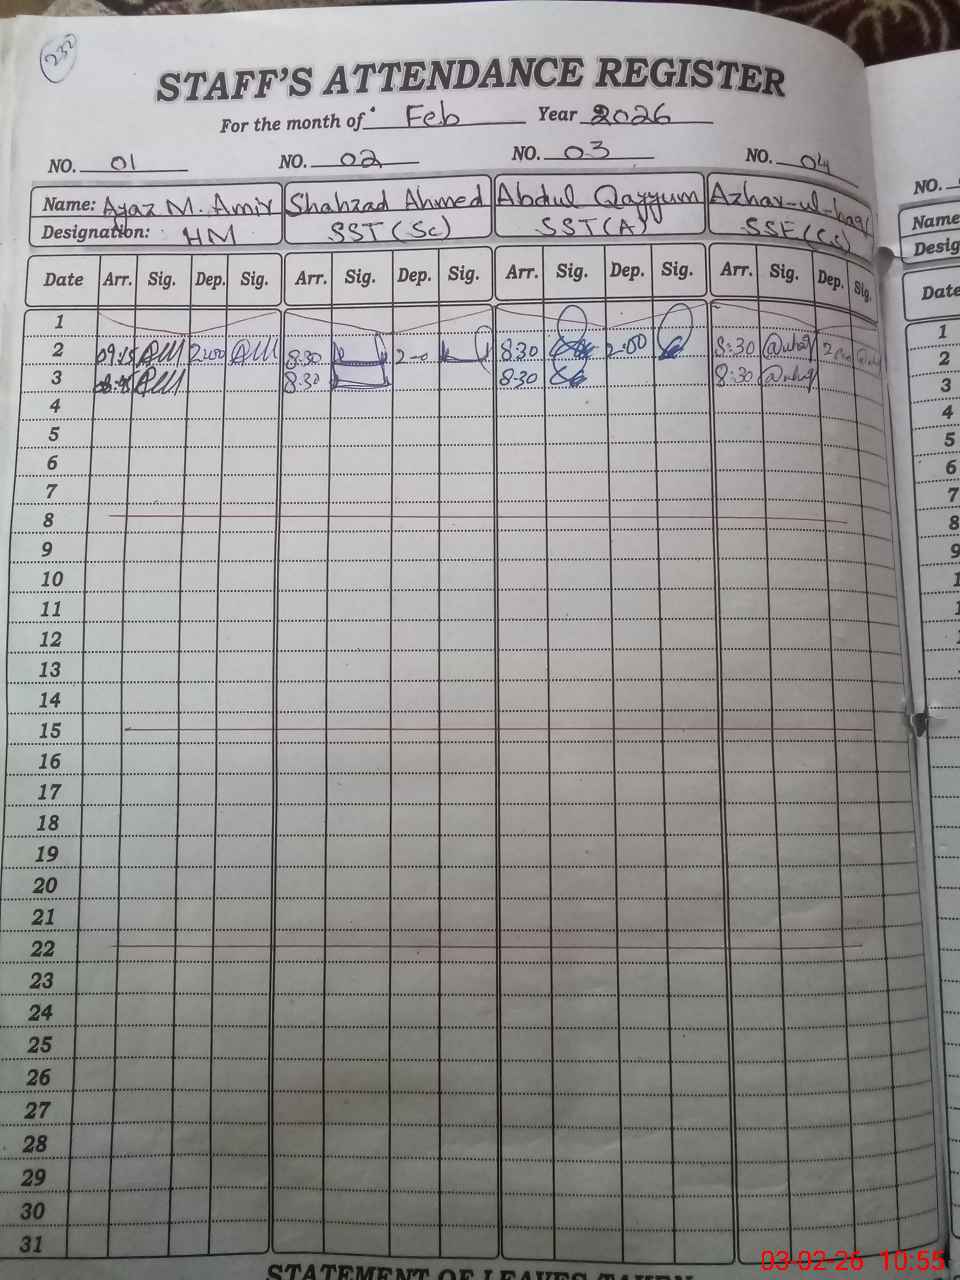 232
STAFF'S ATTENDANCE REGISTER
For the month of Feb Year 2026
NO. 01 NO. 02 NO. 03 NO. 04 NO.
Name: Ayaz M. Amir Shahzad Ahmed Abdul Qayyum Azhar-ul-haq Name
Designation: HM SST (Sc) SST (A) Desig
Date Arr. Sig. Dep. Sig. Arr. Sig. Dep. Sig. Arr. Sig. Dep. Sig. Arr. Sig. Dep. Sig. Date
1 1
2 8:30 2-0 8:30 2-00 8:30 2
3 8:30 8:30 8:30 3
4 4
5 5
6 6
7 7
8 8
9 9
10 1
11 1
12
13
14
15
16
17
18
19
20
21
22
23
24
25
26
27
28
29
30
31
STATEMENT OF LEAVES TAKEN
03-02-26 10:55